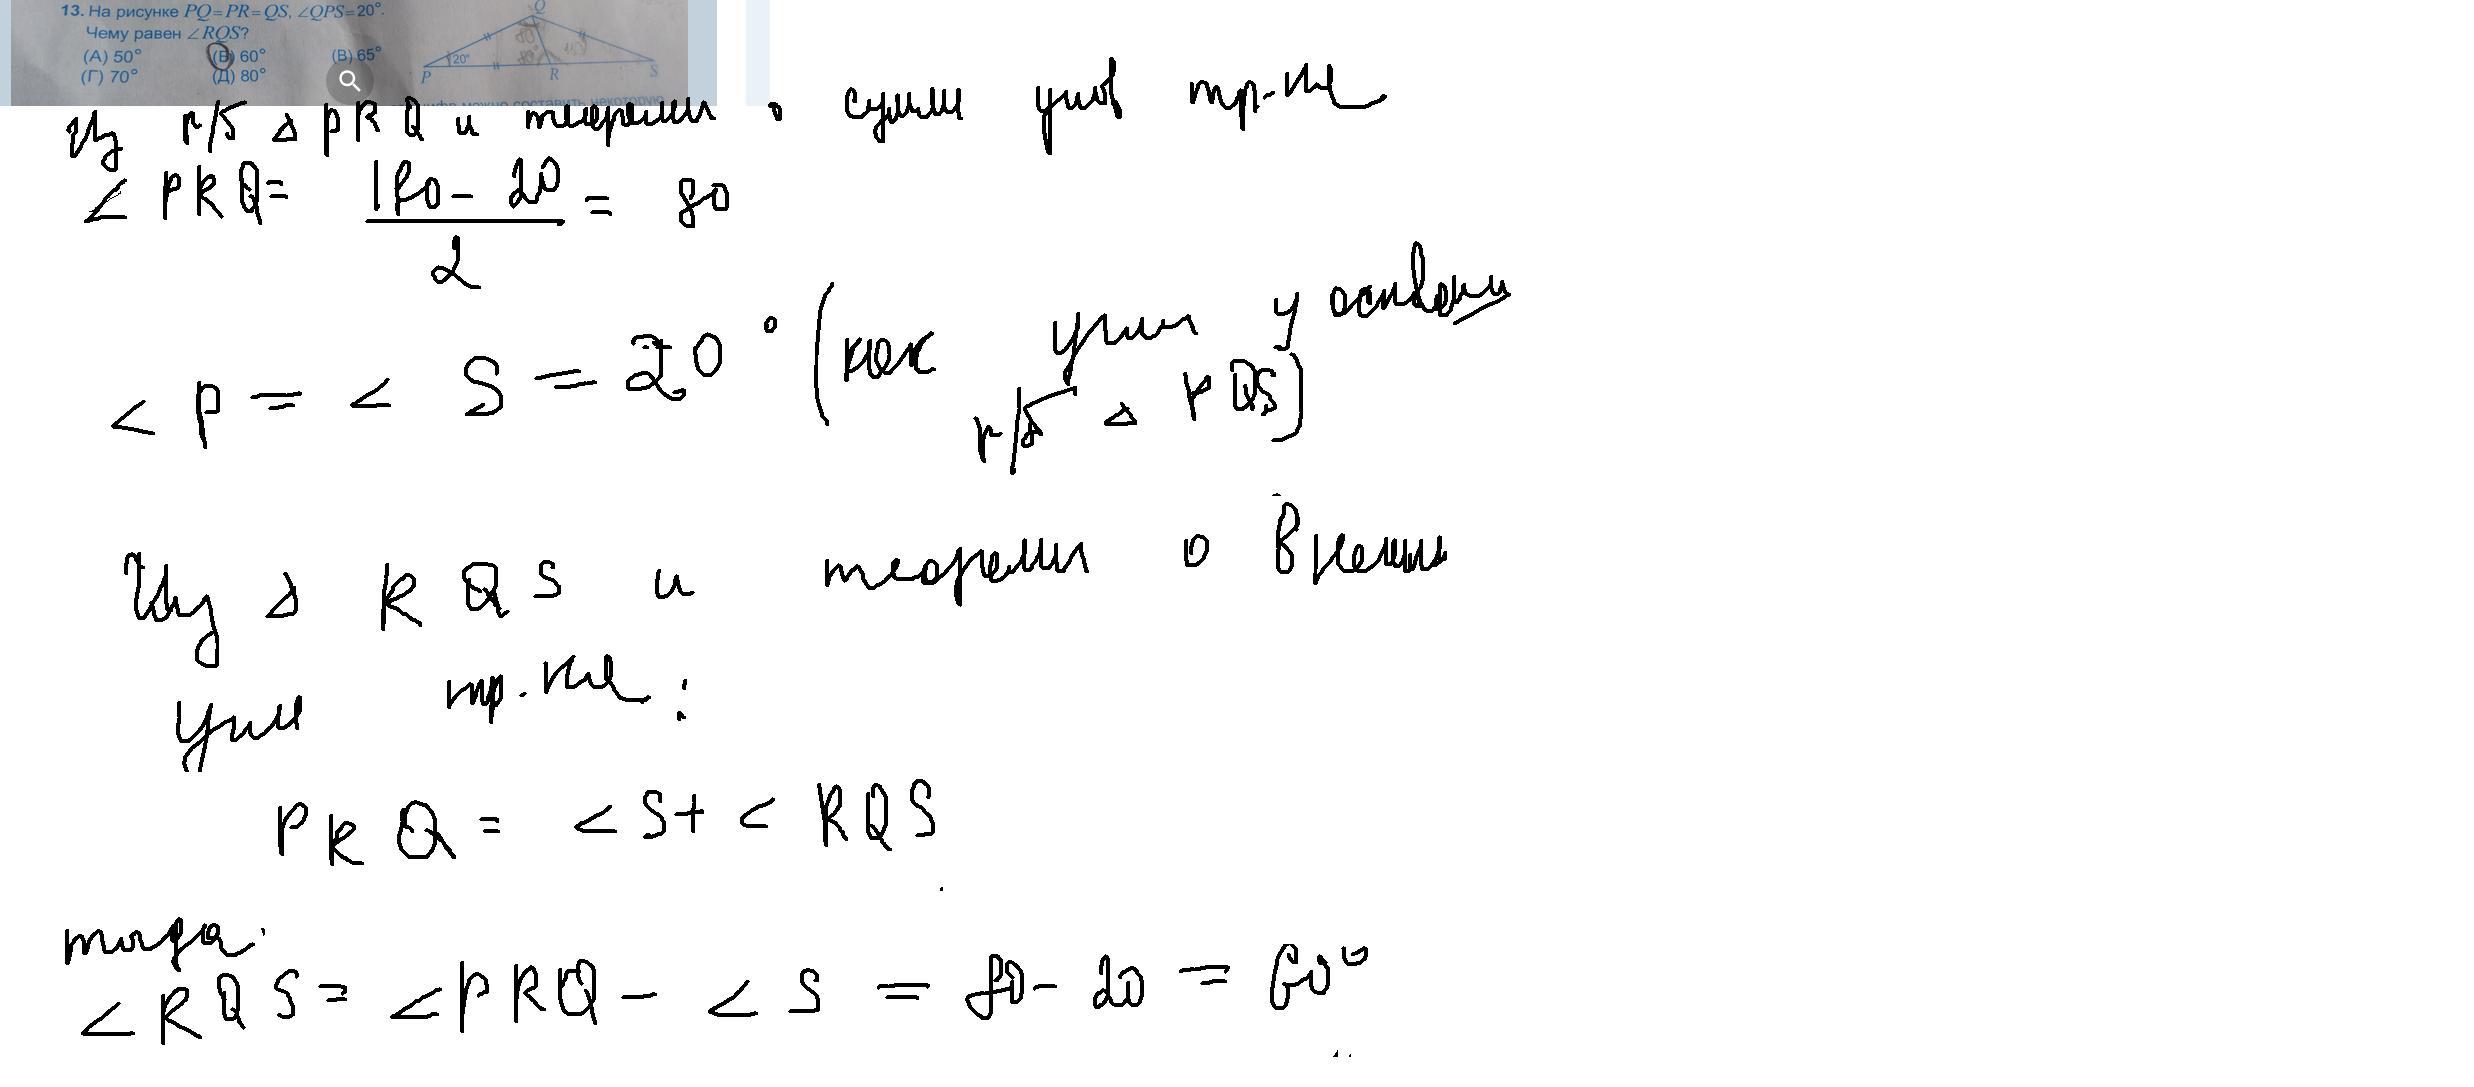 13. На рисунке PQ=PR=QS, ∠QPS=20°.
Чему равен ∠RQS?
(А) 50° (Б) 60° (В) 65°
(Г) 70° (Д) 80°
Q
20°
P R S
Из р/б Δ PRQ и теоремы о сумме углов тр-ка
∠ PRQ = \frac{180 - 20}{2} = 80
∠ P = ∠ S = 20° (как углы у основания
р/б Δ PQS)
Из Δ RQS и теоремы о внешнем
угле тр-ка:
PRQ = ∠ S + ∠ RQS
тогда:
∠ RQS = ∠ PRQ - ∠ S = 80 - 20 = 60°